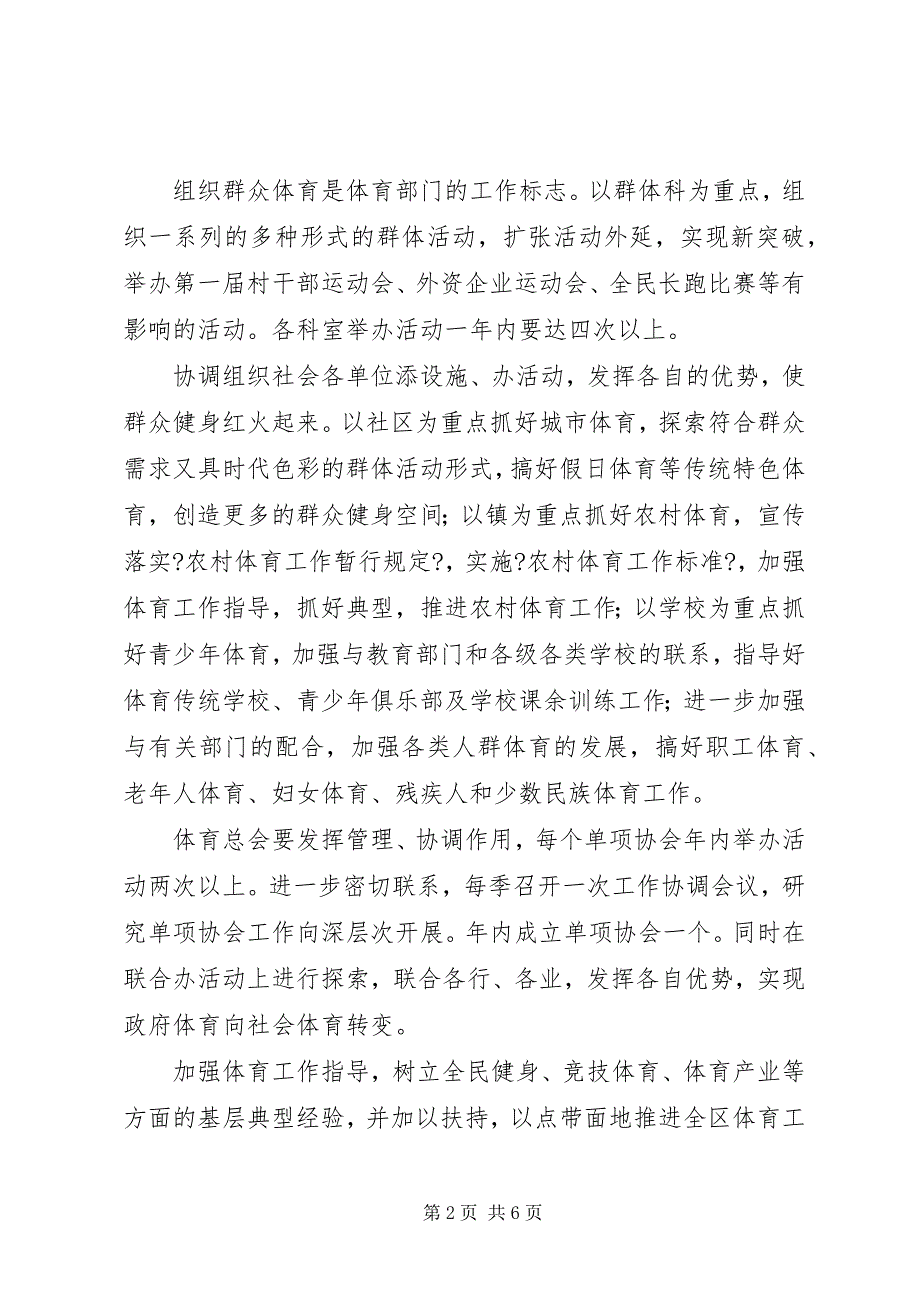 组织群众体育是体育部门的工作标志。以群体科为重点，组
织一系列的多种形式的群体活动，扩张活动外延，实现新突破，
举办第一届村干部运动会、外资企业运动会、全民长跑比赛等有
影响的活动。各科室举办活动一年内要达四次以上。
协调组织社会各单位添设施、办活动，发挥各自的优势，使
群众健身红火起来。以社区为重点抓好城市体育，探索符合群众
需求又具时代色彩的群体活动形式，搞好假日体育等传统特色体
育，创造更多的群众健身空间；以镇为重点抓好农村体育，宣传
落实?农村体育工作暂行规定?，实施?农村体育工作标准?，加强
体育工作指导，抓好典型，推进农村体育工作；以学校为重点抓
好青少年体育，加强与教育部门和各级各类学校的联系，指导好
体育传统学校、青少年俱乐部及学校课余训练工作；进一步加强
与有关部门的配合，加强各类人群体育的发展，搞好职工体育、
老年人体育、妇女体育、残疾人和少数民族体育工作。
体育总会要发挥管理、协调作用，每个单项协会年内举办活
动两次以上。进一步密切联系，每季召开一次工作协调会议，研
究单项协会工作向深层次开展。年内成立单项协会一个。同时在
联合办活动上进行探索，联合各行、各业，发挥各自优势，实现
政府体育向社会体育转变。
加强体育工作指导，树立全民健身、竞技体育、体育产业等
方面的基层典型经验，并加以扶持，以点带面地推进全区体育工
第 2 页 共 6 页